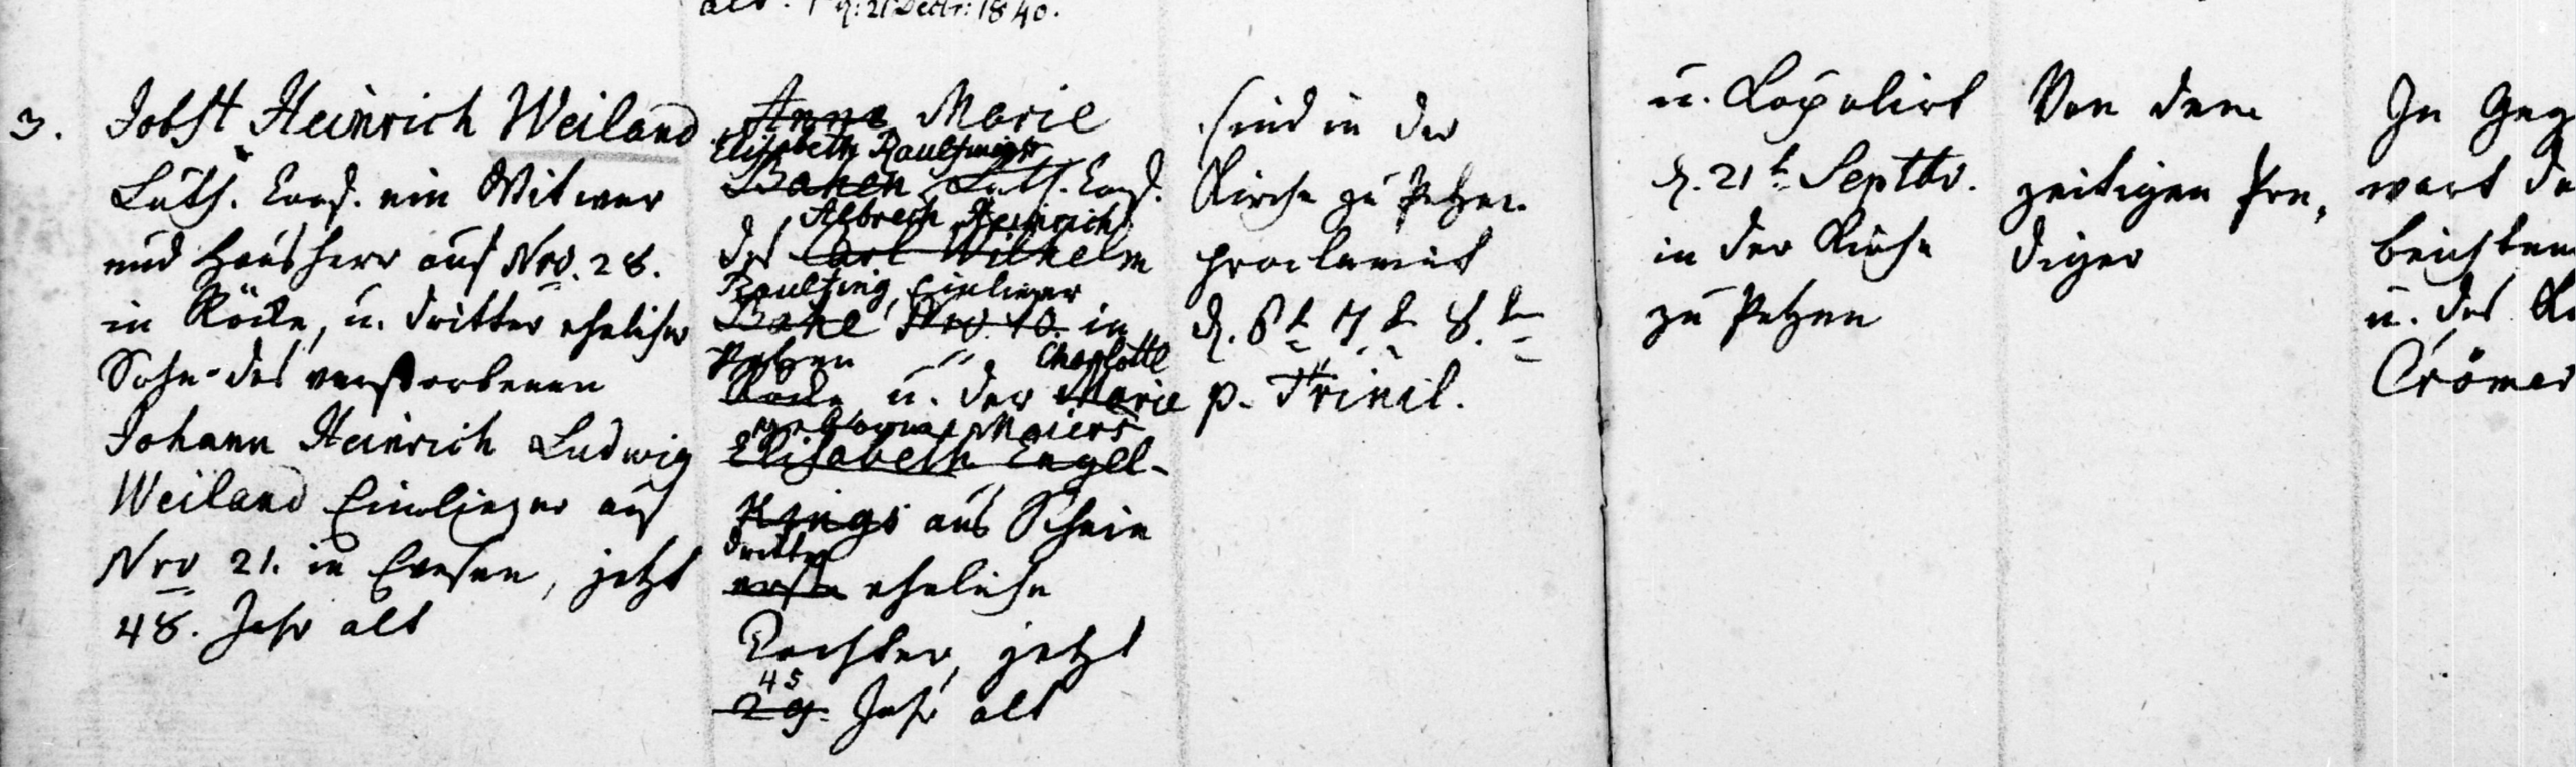 alt. 1 q: 21 Decbr: 1840.
3.
Jobst Heinrich Weiland
Luth. Conf. ein Witwer
und Hausherr auf Nro. 28.
in Röcke, u. dritter ehelicher
Sohn des verstorbenen
Johann Heinrich Ludwig
Weiland Einlieger auf
Nro 21. in Evesen, jetzt
48. Jahr alt
Anna Marie
Elisabeth
Baken Luth. Conf.
Albrech Heinrich
des Carl Wilhelm
Paulsing Einlieger
Bake Nro. 10. in
Petzen Charlotte
Röcke u. der Marie
gebornen Meiers
Elisabeth Engel
Kings aus Schein
dritte
erste eheliche
Tochter, jetzt
45
29. Jahr alt
sind in der
Kirche zu Petzen
proclamirt
d. 6t 7t 8.t
p. Trinit.
u. Copulirt
d. 21t Septbr.
in der Kirche
zu Petzen
Von dem
zeitigen Pre,
diger
In Geg
wart de
beichten
u. des K
Crömer